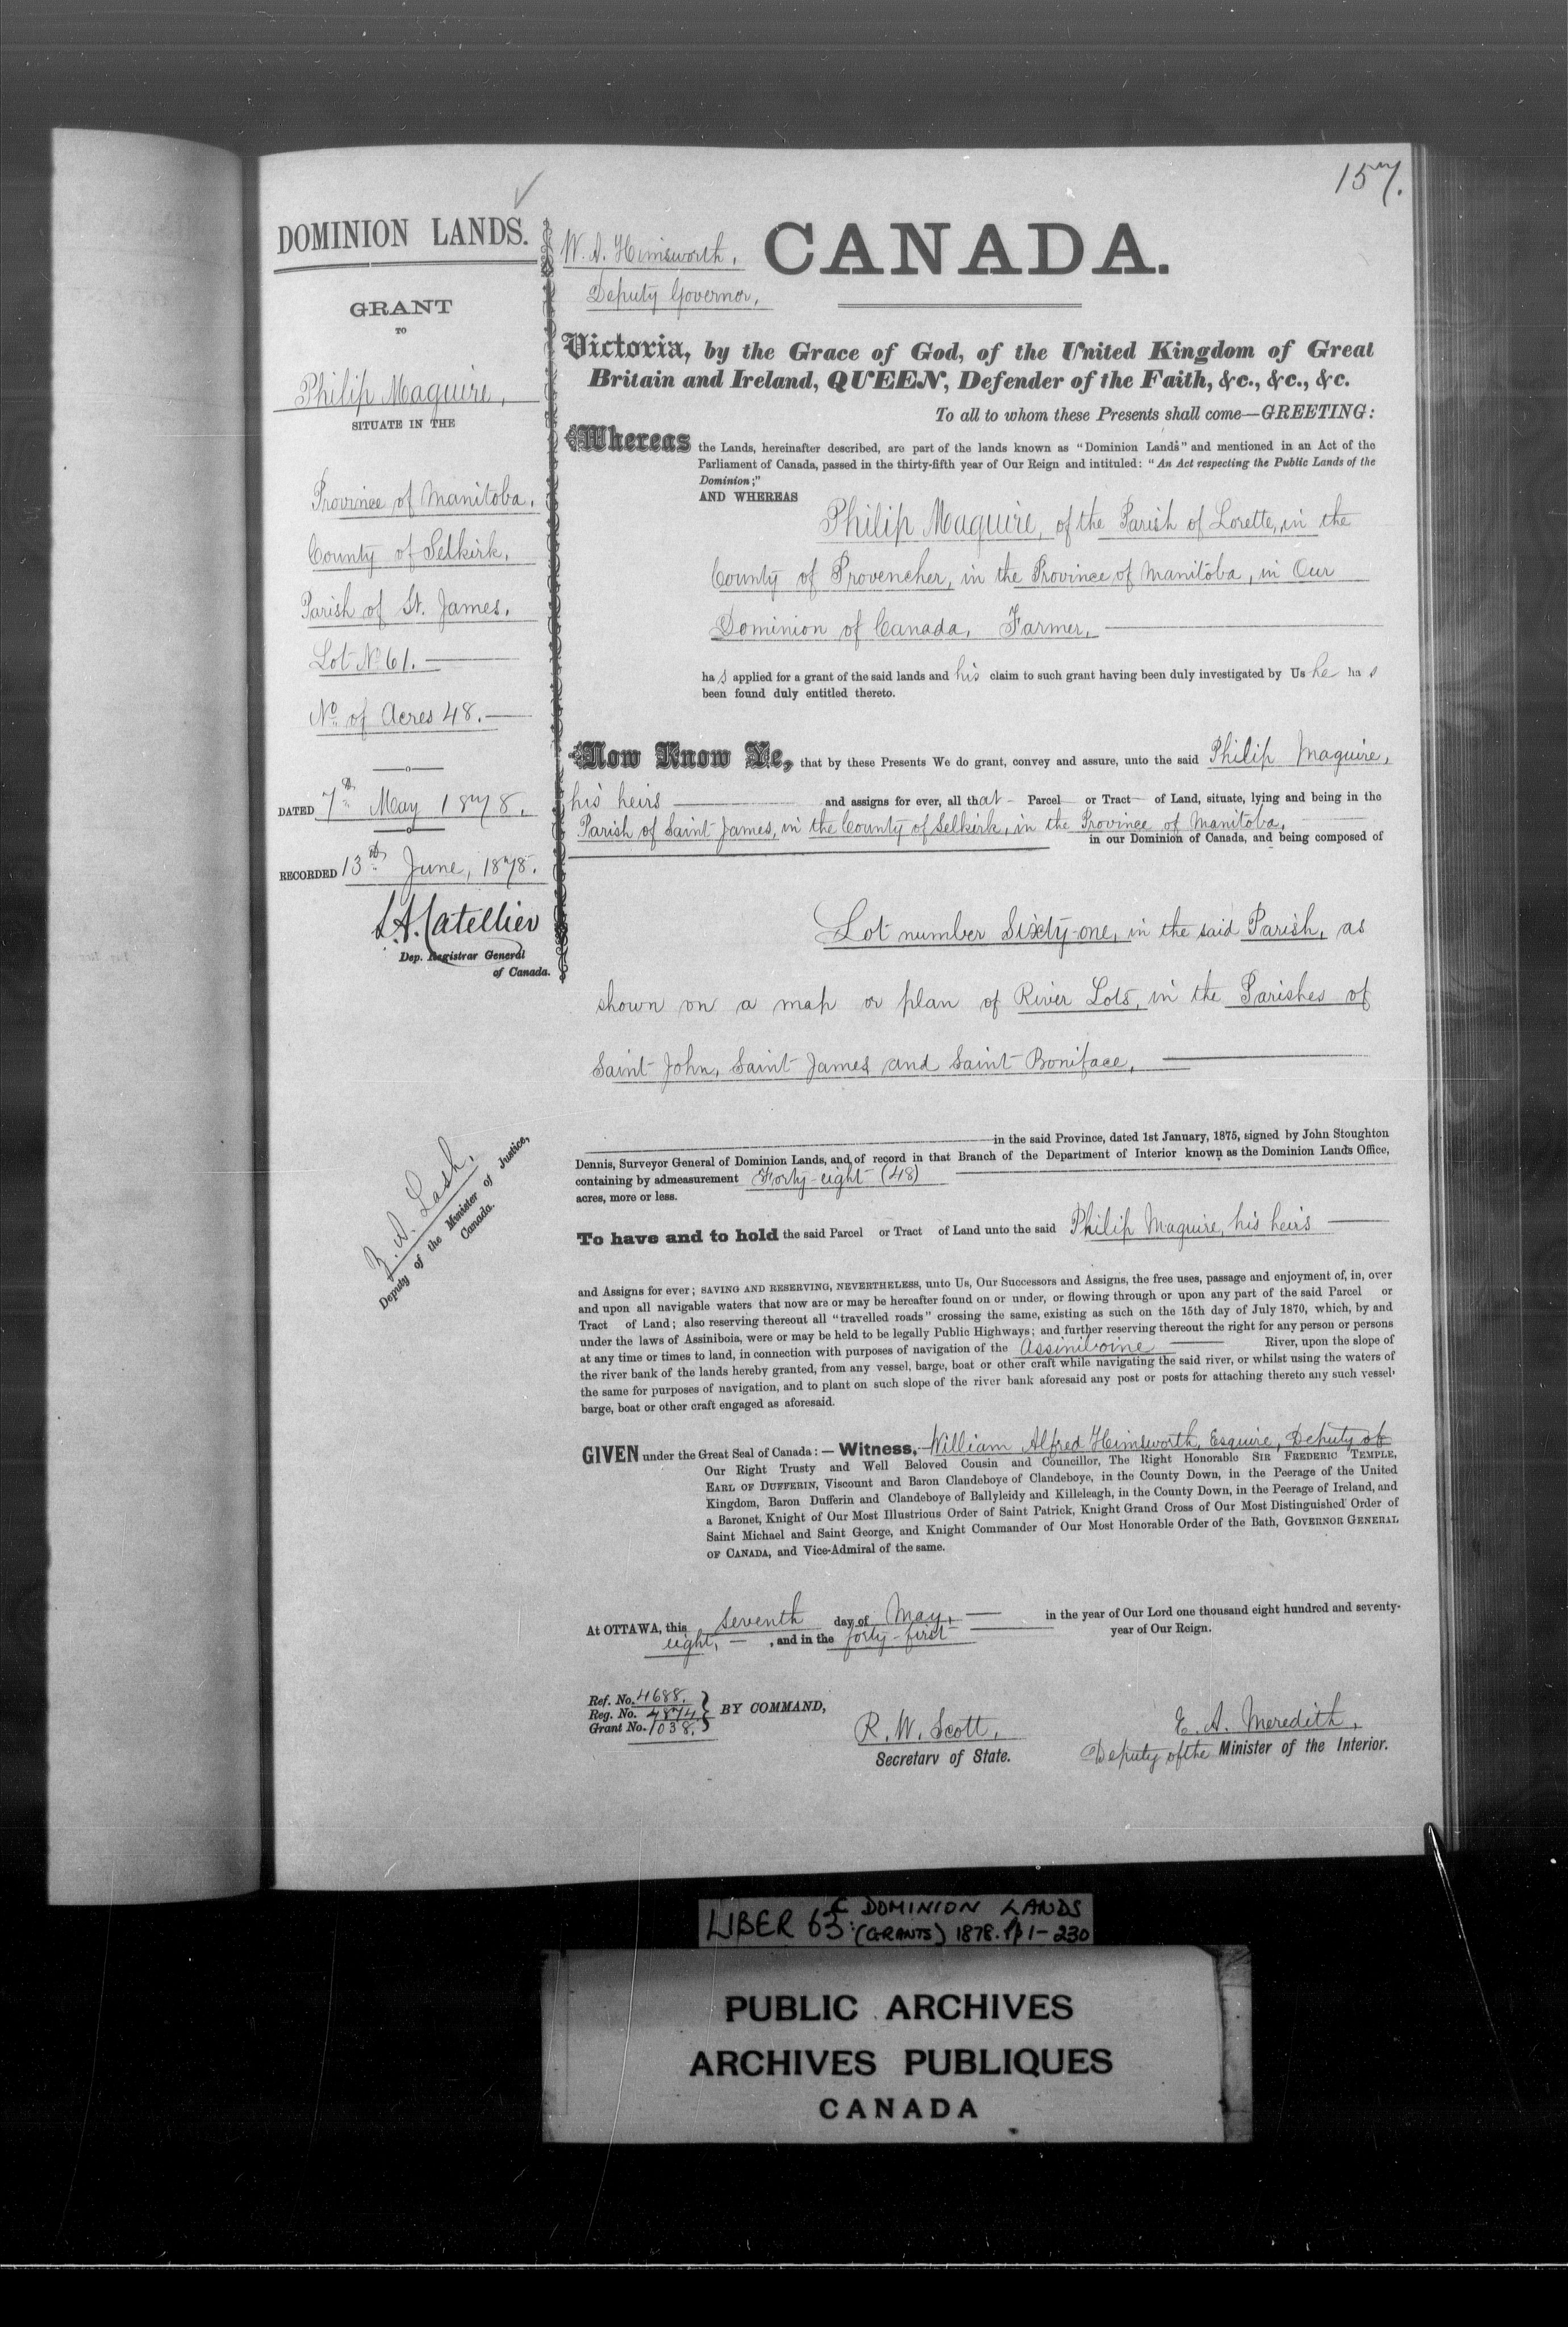 157.
DOMINION LANDS.
GRANT
TO
Philip Maguire,
SITUATE IN THE
Province of Manitoba,
County of Selkirk,
Parish of St. James,
Lot No 61.
No of Acres 48.
DATED 7th May 1878.
RECORDED 13th June, 1878.
L.A. Catellier
Dep. Registrar General
of Canada.
Z. A. Lash,
Deputy of the Minister of Justice,
Canada.
W. A. Himsworth,
Deputy Governor,
CANADA.
Victoria, by the Grace of God, of the United Kingdom of Great
Britain and Ireland, QUEEN, Defender of the Faith, &c., &c., &c.
To all to whom these Presents shall come—GREETING:
Whereas the Lands, hereinafter described, are part of the lands known as "Dominion Lands" and mentioned in an Act of the
Parliament of Canada, passed in the thirty-fifth year of Our Reign and intituled: "An Act respecting the Public Lands of the
Dominion;"
AND WHEREAS
Philip Maguire, of the Parish of Lorette, in the
County of Provencher, in the Province of Manitoba, in Our
Dominion of Canada, Farmer,
has applied for a grant of the said lands and his claim to such grant having been duly investigated by Us he has
been found duly entitled thereto.
Now Know Ye, that by these Presents We do grant, convey and assure, unto the said Philip Maguire,
his heirs and assigns for ever, all that Parcel or Tract of Land, situate, lying and being in the
Parish of Saint James, in the County of Selkirk, in the Province of Manitoba,
in our Dominion of Canada, and being composed of
Lot number Sixty-one, in the said Parish, as
shown on a map or plan of River Lots, in the Parishes of
Saint John, Saint James and Saint Boniface,
in the said Province, dated 1st January, 1875, signed by John Stoughton
Dennis, Surveyor General of Dominion Lands, and of record in that Branch of the Department of Interior known as the Dominion Lands Office,
containing by admeasurement Forty-eight (48)
acres, more or less.
To have and to hold the said Parcel or Tract of Land unto the said Philip Maguire, his heirs
and Assigns for ever; SAVING AND RESERVING, NEVERTHELESS, unto Us, Our Successors and Assigns, the free uses, passage and enjoyment of, in, over
and upon all navigable waters that now are or may be hereafter found on or under, or flowing through or upon any part of the said Parcel or
Tract of Land; also reserving thereout all "travelled roads" crossing the same, existing as such on the 15th day of July 1870, which, by and
under the laws of Assiniboia, were or may be held to be legally Public Highways; and further reserving thereout the right for any person or persons
at any time or times to land, in connection with purposes of navigation of the Assiniboine River, upon the slope of
the river bank of the lands hereby granted, from any vessel, barge, boat or other craft while navigating the said river, or whilst using the waters of
the same for purposes of navigation, and to plant on such slope of the river bank aforesaid any post or posts for attaching thereto any such vessel,
barge, boat or other craft engaged as aforesaid.
GIVEN under the Great Seal of Canada:—Witness, William Alfred Himsworth, Esquire, Deputy of
Our Right Trusty and Well Beloved Cousin and Councillor, The Right Honorable SIR FREDERIC TEMPLE,
EARL OF DUFFERIN, Viscount and Baron Clandeboye of Clandeboye, in the County Down, in the Peerage of the United
Kingdom, Baron Dufferin and Clandeboye of Ballyleidy and Killeleagh, in the County Down, in the Peerage of Ireland, and
a Baronet, Knight of Our Most Illustrious Order of Saint Patrick, Knight Grand Cross of Our Most Distinguished Order of
Saint Michael and Saint George, and Knight Commander of Our Most Honorable Order of the Bath, GOVERNOR GENERAL
OF CANADA, and Vice-Admiral of the same.
At OTTAWA, this seventh day of May, in the year of Our Lord one thousand eight hundred and seventy-
eight, , and in the forty-first year of Our Reign.
Ref. No. 4688.
Reg. No. 4874.
Grant No. 1038.
BY COMMAND,
R. W. Scott,
Secretary of State.
E. A. Meredith,
Deputy of the Minister of the Interior.
LIBER 63: C DOMINION LANDS
(GRANTS) 1878. pp 1-230
PUBLIC ARCHIVES
ARCHIVES PUBLIQUES
CANADA